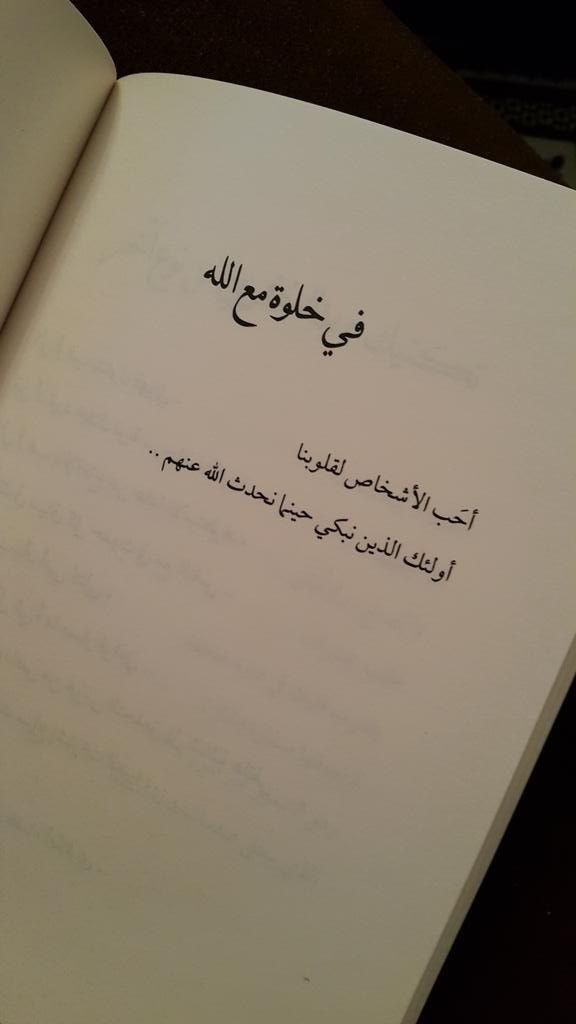 في خلوة مع الله
أحَب الأشخاص لقلوبنا
أولئك الذين نبكي حينما نحدث الله عنهم ..